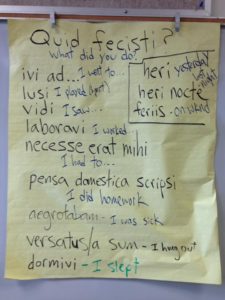 Quid fecisti?
what did you do?
ivi ad... I went to...
lusi I played (sport)
vidi I saw...
laboravi I worked...
necesse erat mihi
I had to...
pensa domestica scripsi
I did homework
aegrotabam - I was sick
versatus/a sum - I hung out
dormivi - I slept
heri yesterday
heri nocte last night
feriis - on wknd